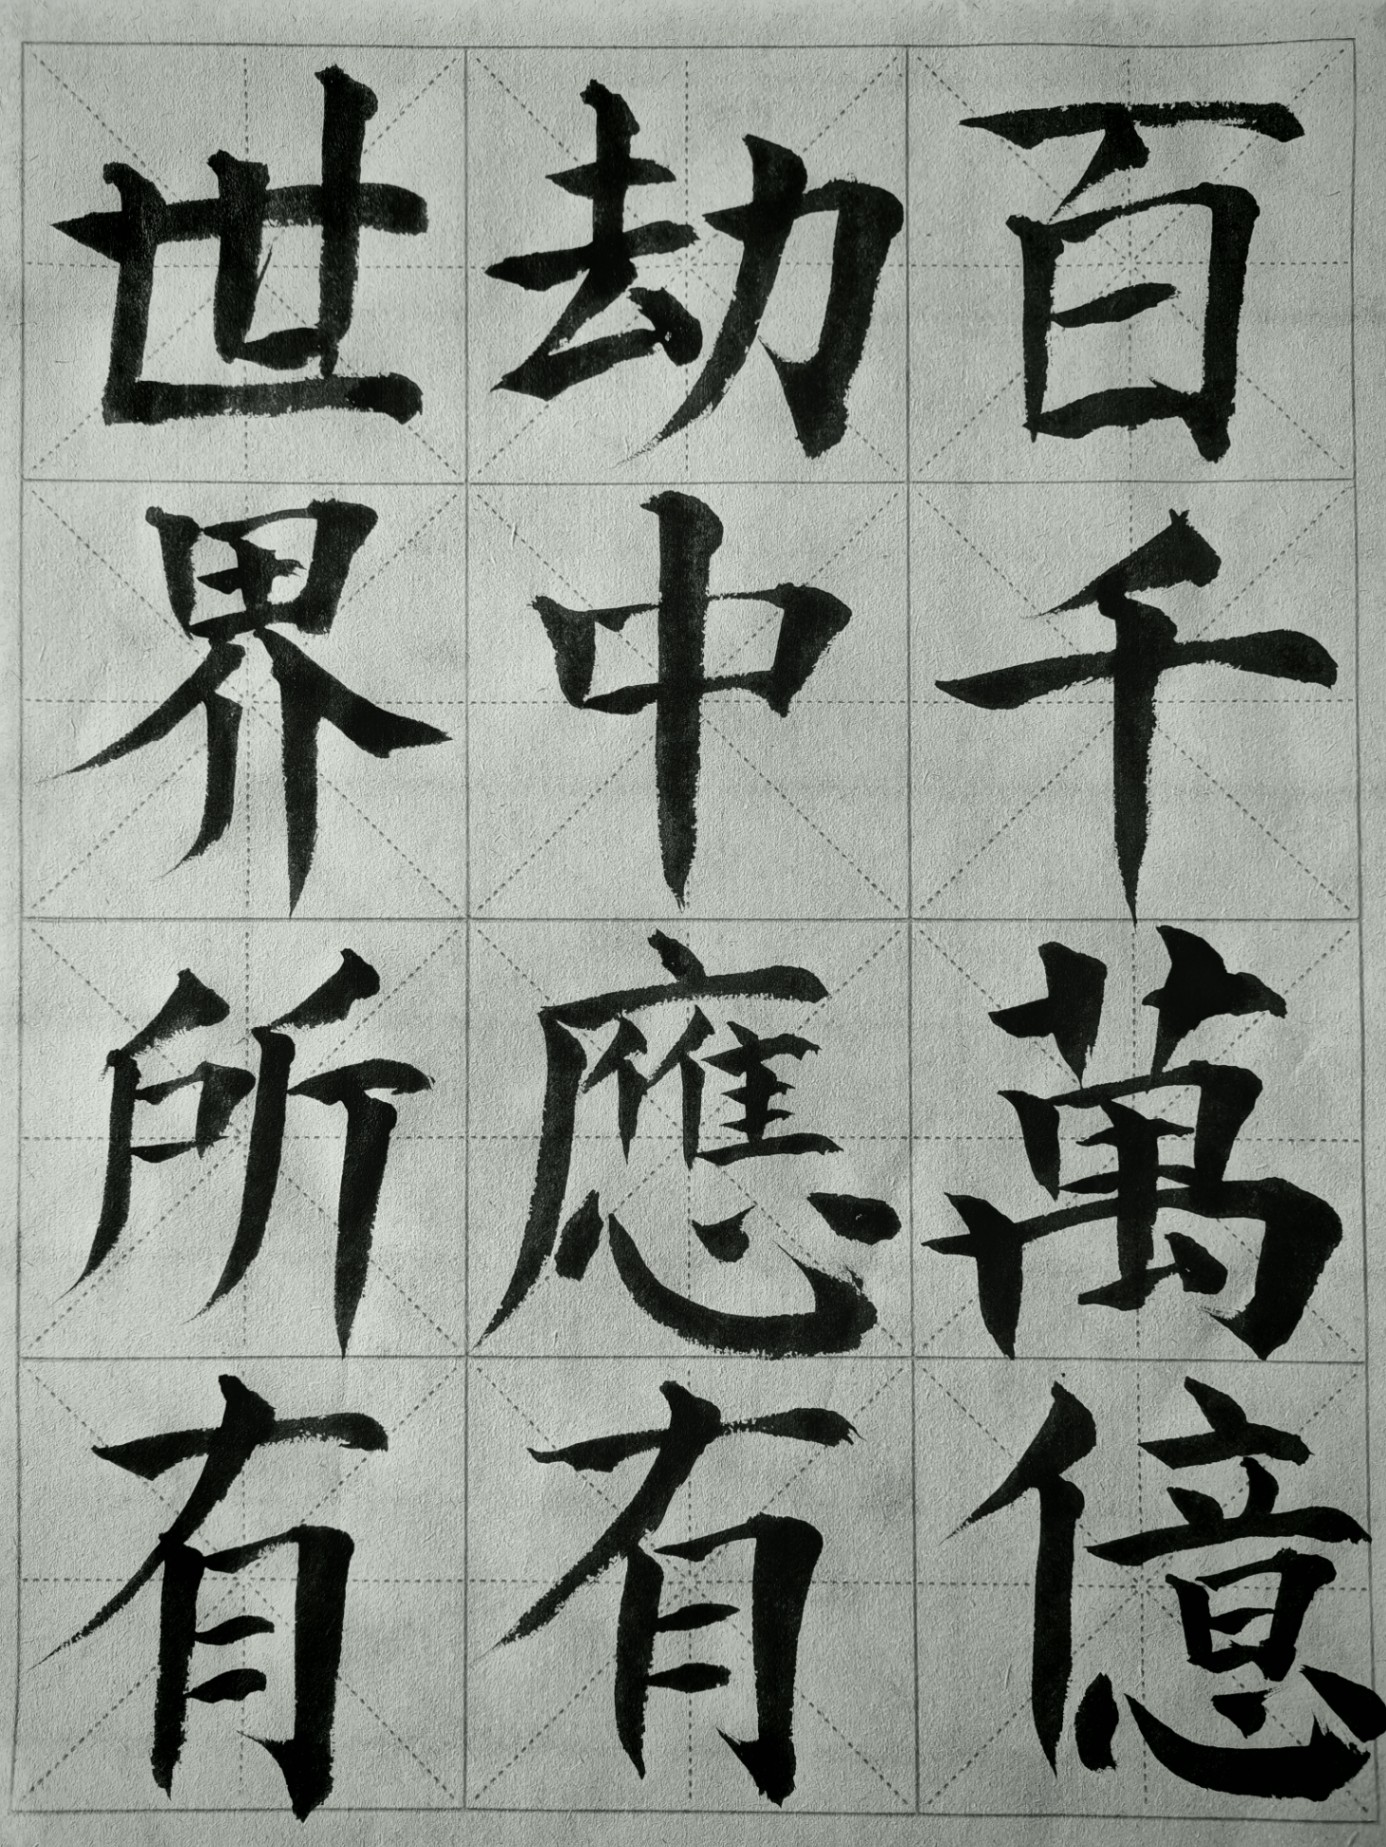 百千萬億
劫中應有
世界所有